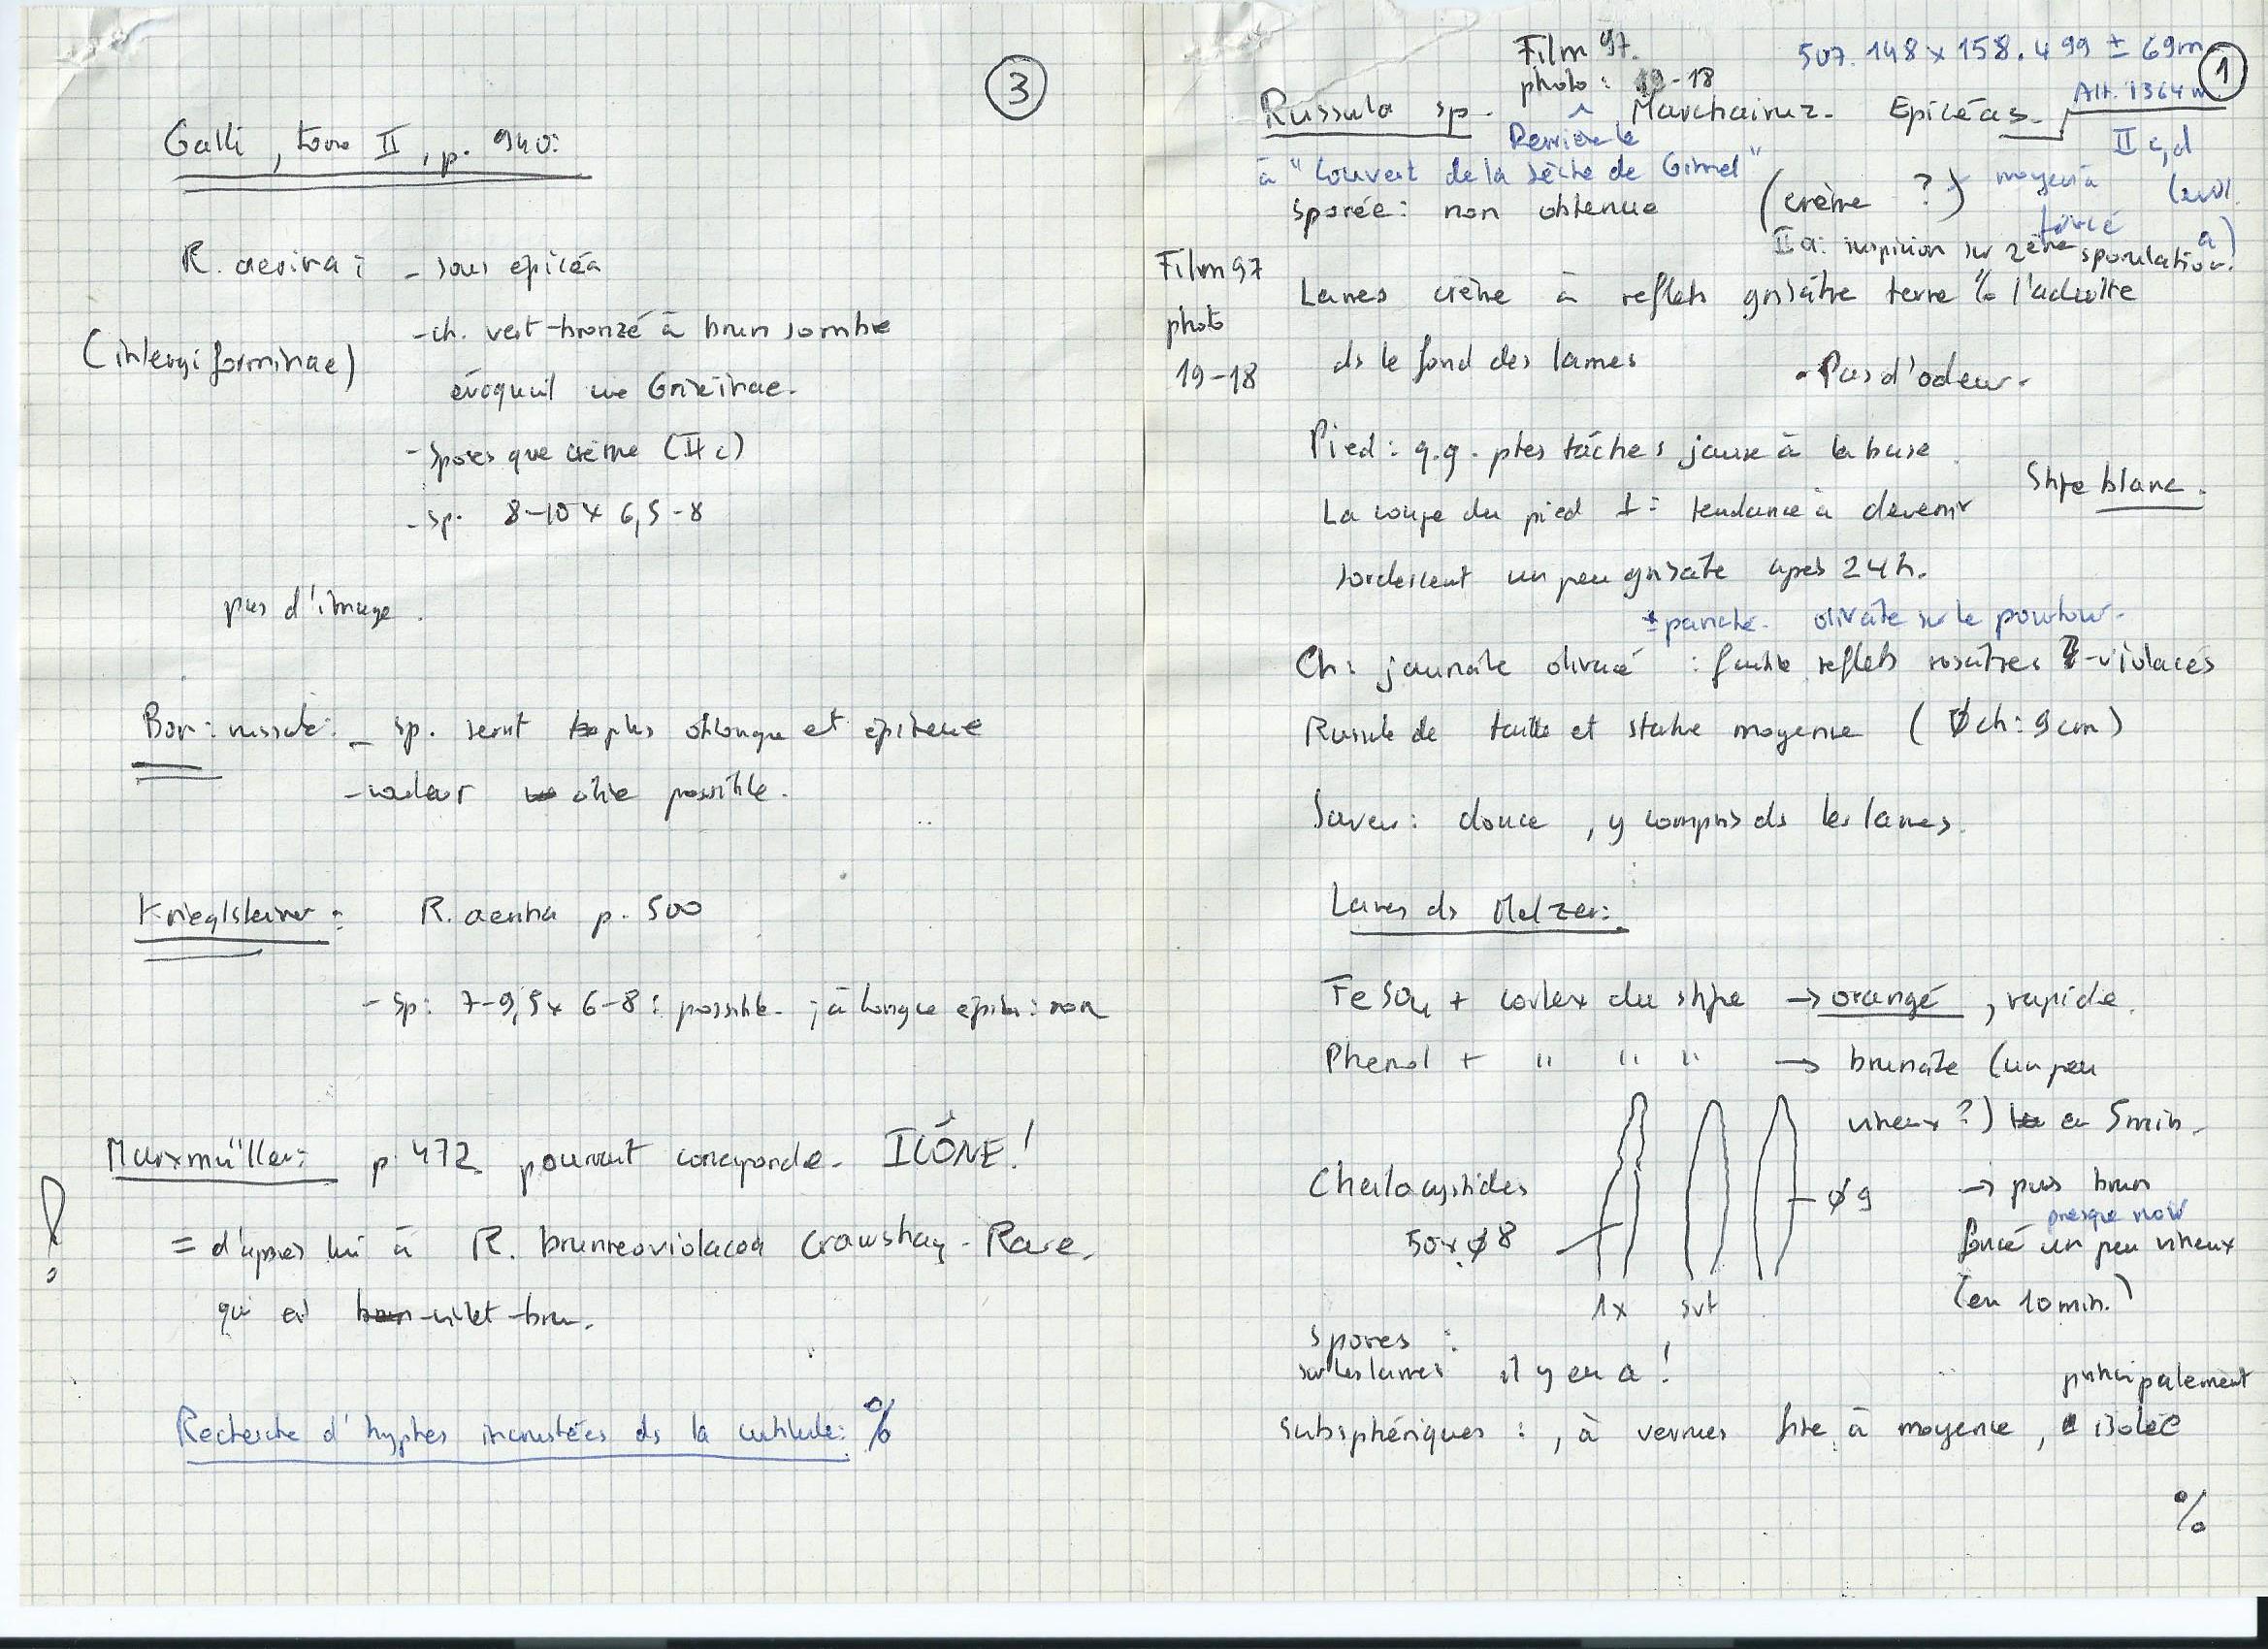 3
Galli, tome II, p. 940:
R. aerina: - sous épicéa
(integriforminae) - ch. vert-bronzé à brun sombre
évoquant une Griseinae.
- spores que crème (II c)
- sp. 8-10 x 6,5-8
pas d'image.
Bon: russule: - sp. sont plus oblongue et épineuse
- couleur olive possible.
Krieglsteiner: R. aerina p. 500
- Sp: 7-9,5 x 6-8: possible ; à longue épines: non
Marxmüller: p. 472 pourrait correspondre. ICÔNE!
! = d'après lui à R. brunneoviolacea Crawshay. Rare.
qui est violet-brun.
Recherche d'hyphes incrustées ds la cuticule: %
1
Film 97. 507.148 x 158.499 ± 69m
photo: 19-18 Alt. 1364 m
Russula sp. Marchairuz. Epicéas. II c,d
Derrière le
à "Couvert de la sèche de Gimel" moyen à
foncé
sporée: non obtenue (crème ?)
II a: suspicion sur 2ème sporulation.
Film 97
photo
19-18
Lames crème à reflets grisâtre terre à l'adulte
ds le fond des lames • Pas d'odeur.
Pied: q.q. ptes tâches jaune à la base
Stipe blanc.
La coupe du pied ⊥: tendance à devenir
sordescent un peu grisate après 24h.
± panaché. olivâte sur le pourtour.
Ch: jaunâte olivacé : faible reflets rosâtres -violacés
Russule de taille et stature moyenne (Øch: 9 cm)
Saveur: douce, y compris ds les lames.
Lames ds Melzer:
FeSO4 + cortex du stipe → orangé, rapide.
Phenol + " " " → brunate (un peu
vineux ?) en 5 min.
Cheilocystides Ø 9 → puis brun
presque noir
50 x Ø 8 foncé un peu vineux
1x svt (en 10 min.)
Spores :
sur les lames il y en a !
principalement
Subsphériques : , à verrues fine à moyenne, isolée
%